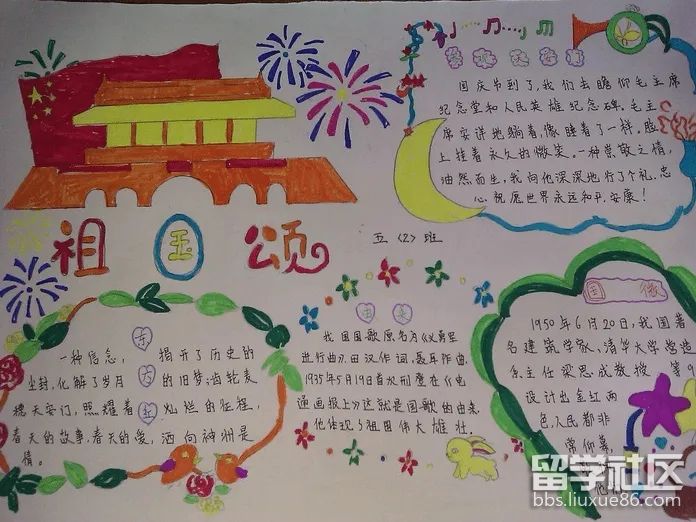 参观天安门
国庆节到了,我们去瞻仰毛主席
纪念堂和人民英雄纪念碑。毛主
席安详地躺着,像睡着了一样。脸
上挂着永久的微笑。一种崇敬之情,
油然而生,我向他深深地行了个礼。忠
心祝愿世界永远和平,安康!
祖国颂
五〈2〉班
东方红
一种信念, 揭开了历史的
尘封,化解了岁月 的旧梦;齿轮麦
穗天安门,照耀着 灿烂的征程,
春天的故事,春天的爱,洒向神州是
情。
由来
我国国歌原名为《义勇军
进行曲》。田汉作词,聂耳作曲。
1935年5月19日首次刊原在《电
通画报上》这就是国歌的由来,
他体现了祖国伟大雄壮。
国 徽
1950年6月20日,我国著
名建筑学家、清华大学营造
系主任梁思成教授 第9
设计出金红两
色,人民都非
常仰慕,
他
留学社区
bbs.liuxue86.com